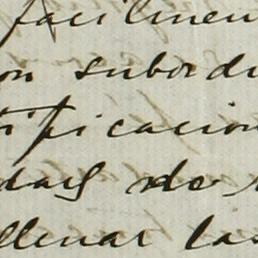 facilmen
on subordi
tificacion
dad no
llenar las